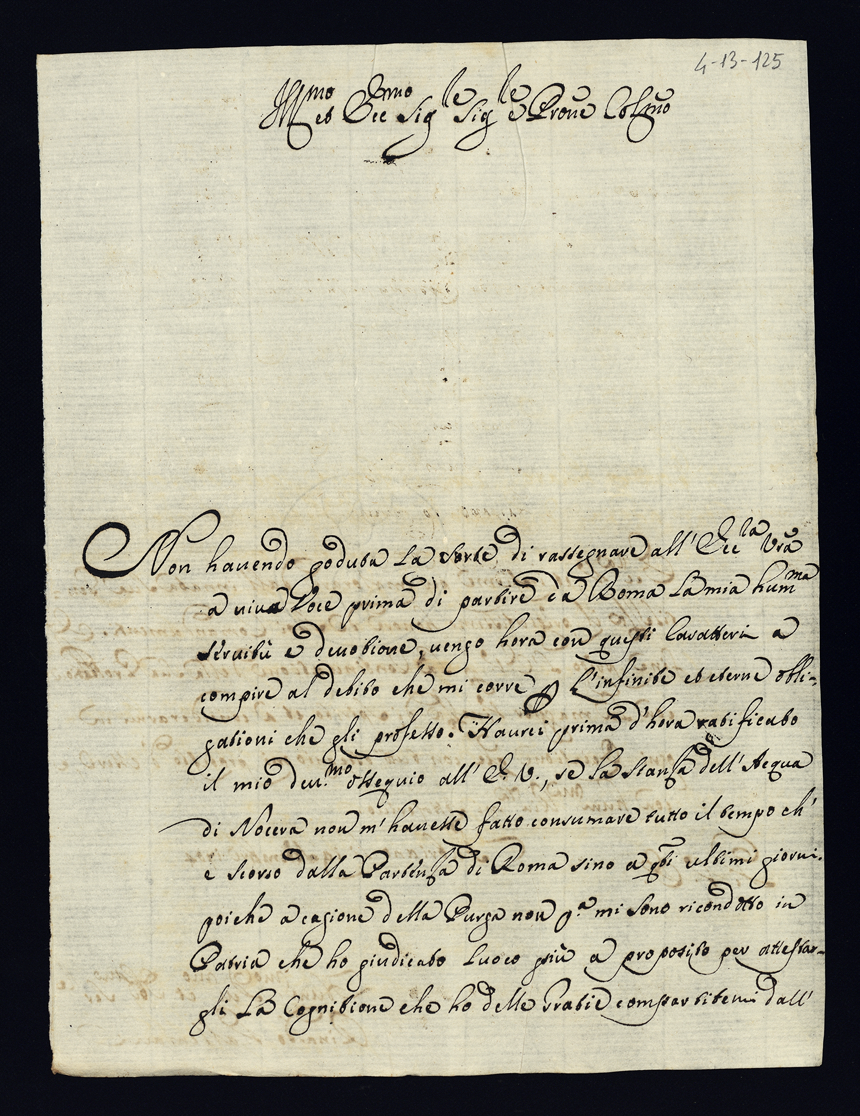 4-13-125
Ill.mo et Ecc.mo Sig.le Sig.le e Prone Col.mo
Non hauendo goduta la sorte di rassegnare all' Ecc.la Vrã
a viva Voce prima di partire da Roma la mia hum.ma
seruitù e deuotione, uengo hora con questi Caratteri a
compire al debito che mi corre p l'infinite et eterne obli-
gationi che gli professo. Haurei prima d'hora ratificato
il mio deu.mo ossequio all' E. V., se la stanza dell' Acqua
di Nocera non m'hauesse fatto consumare tutto il tempo ch'
è scorso dalla Partenza di Roma sino a qti ultimi giorni.
poiche a cagione della Purga non p.a mi sono ricondotto in
Patria che ho giudicato luoco più a proposito per attestar-
gli la Cognitione che ho delle Gratie compartitemi dall'